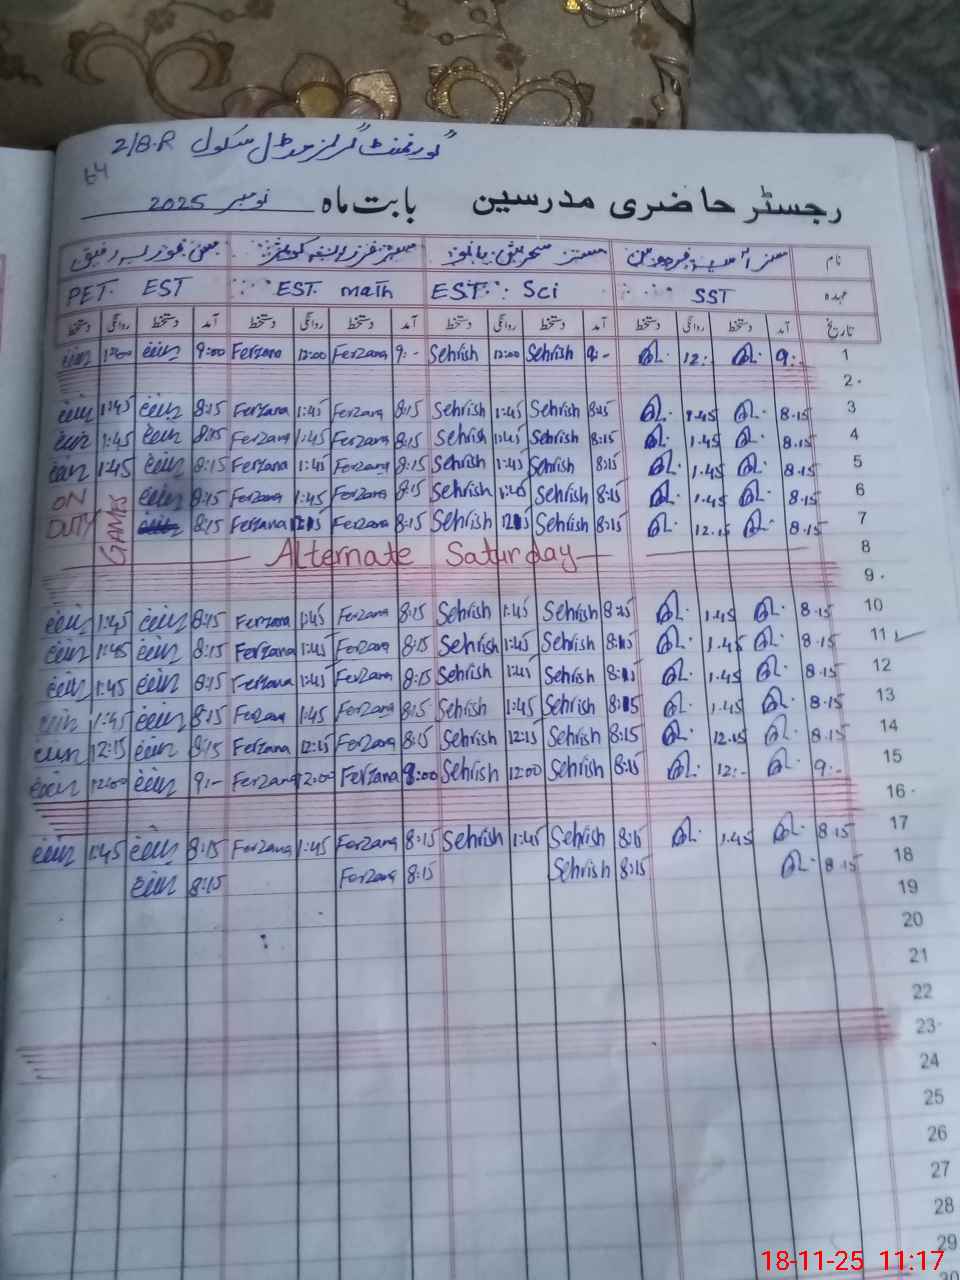 گورنمنٹ گرلز مڈل سکول 2/8.R
64
رجسٹر حاضری مدرسین بابت ماہ نومبر 2025
نام مسز آسیہ فردوس مسز سحرش بانو مسز فرزانہ کوثر مس فوزیہ رفیق
عہدہ SST EST. Sci EST. math PET. EST
تاریخ آمد دستخط روانگی دستخط آمد دستخط روانگی دستخط آمد دستخط روانگی دستخط آمد دستخط روانگی دستخط
1 9:- 12:- 9:- Sehrish 12:00 Sehrish 9:- Ferzana 12:00 Ferzana 9:00 1:00
2.
3 8.15 1.45 8:15 Sehrish 1:45 Sehrish 8:15 Ferzana 1:45 Ferzana 8:15 1:45
4 8.15 1.45 8:15 Sehrish 1:45 Sehrish 8:15 Ferzana 1:45 Ferzana 8:15 1:45
5 8.15 1.45 8:15 Sehrish 1:45 Sehrish 8:15 Ferzana 1:45 Ferzana 8:15 1:45
6 8.15 1.45 8:15 Sehrish 1:45 Sehrish 8:15 Ferzana 1:45 Ferzana 8:15 GAMES ON
7 8.15 12.15 8:15 Sehrish 12:15 Sehrish 8:15 Ferzana 12:15 Ferzana 8:15 DUTY
8 Alternate Saturday
9.
10 8.15 1.45 8:15 Sehrish 1:45 Sehrish 8:15 Ferzana 1:45 Ferzana 8:15 1:45
11 8.15 1.45 8:15 Sehrish 1:45 Sehrish 8:15 Ferzana 1:45 Ferzana 8:15 1:45
12 8.15 1.45 8:15 Sehrish 1:45 Sehrish 8:15 Ferzana 1:45 Ferzana 8:15 1:45
13 8.15 1.45 8:15 Sehrish 1:45 Sehrish 8:15 Ferzana 1:45 Ferzana 8:15 1:45
14 8.15 12.15 8:15 Sehrish 12:15 Sehrish 8:15 Ferzana 12:15 Ferzana 8:15 12:15
15 9:- 12:- 8:15 Sehrish 12:00 Sehrish 8:00 Ferzana 12:00 Ferzana 9:- 12:00
16.
17 8.15 1.45 8:15 Sehrish 1:45 Sehrish 8:15 Ferzana 1:45 Ferzana 8:15 1:45
18 8.15 8:15 Sehrish 8:15 Ferzana 8:15
19
20
21
22
23.
24
25
26
27
28
29
18-11-25 11:17